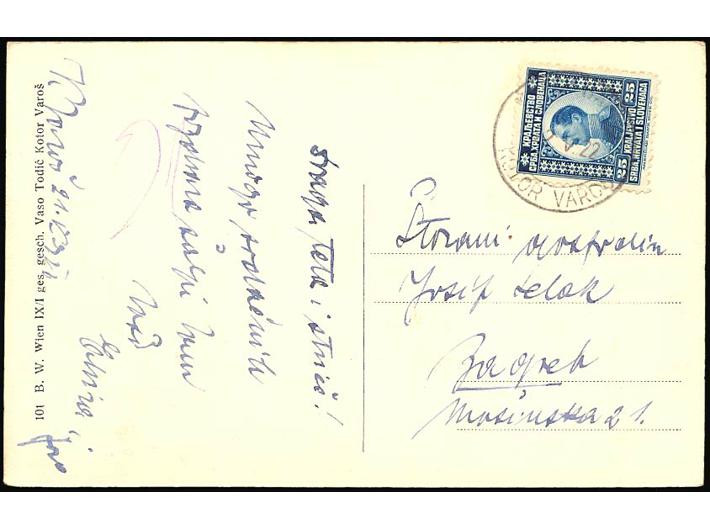 101 B. W. Wien IX/1 ges. gesch. Vaso Todić Kotor Varoš
K. Varoš 21.
Draga teta i striče!
Mnogo srdačnih
pozdrava šalju Vam
Vaši
КРАЉЕВСТВО
СРБА, ХРВАТА И СЛОВЕНАЦА
25
25
KRALJEVSTVO
SRBA, HRVATA I SLOVENACA
V. 22
KOTOR VAROŠ
Štovani gospodin
Josip
Zagreb
21.